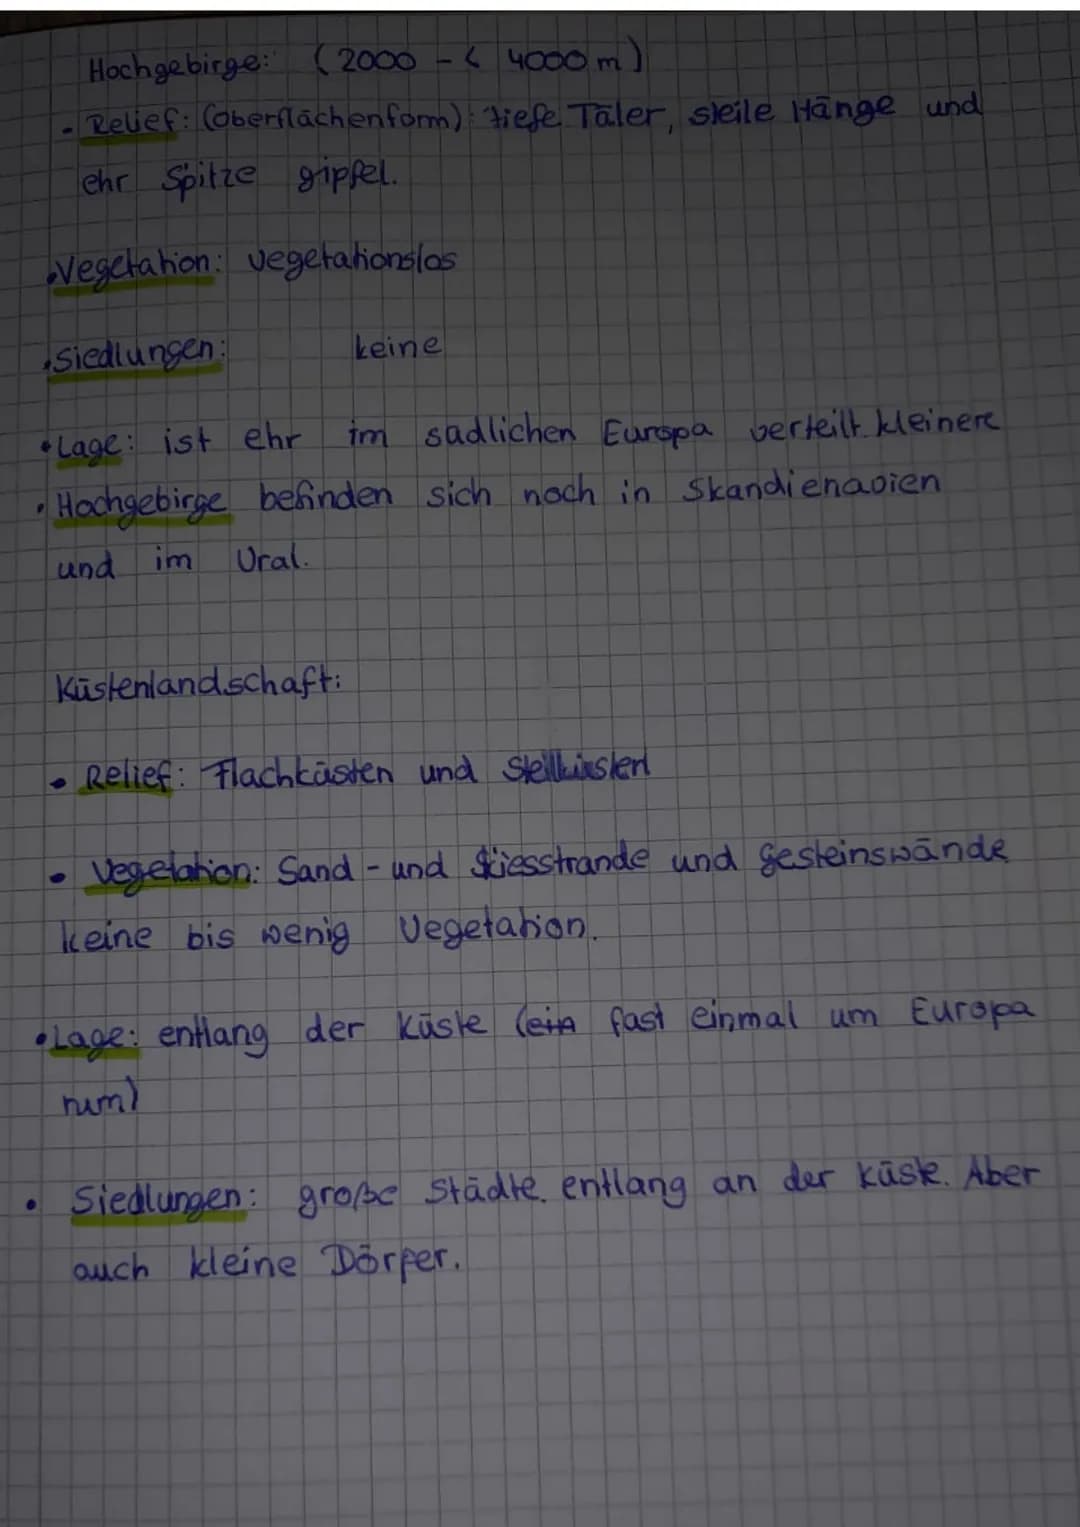 Hochgebirge: (2000 - < 4000 m)
- Relief: (Oberflächenform): tiefe Täler, steile Hänge und
ehr Spitze gipfel.
• Vegetation: vegetationslos
• Siedlungen: keine
• Lage: ist ehr im südlichen Europa verteilt. kleinere
• Hochgebirge befinden sich noch in Skandienavien
und im Ural.
Küstenlandschaft:
• Relief: Flachküsten und Steilküsten
• Vegetation: Sand - und Kiesstrande und Gesteinswände
keine bis wenig Vegetation.
• Lage: entlang der Küste (ein fast einmal um Europa
rum)
• Siedlungen: große Städte entlang an der Küste. Aber
auch kleine Dörfer.